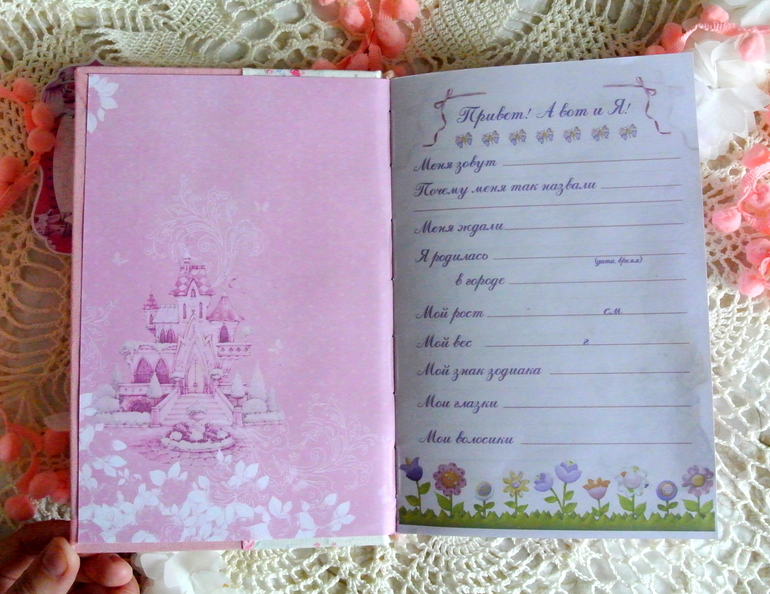 Привет! А вот и Я!
Меня зовут
Почему меня так назвали
Меня ждали
Я родилась
(дата, время)
в городе
Мой рост см
Мой вес г
Мой знак зодиака
Мои глазки
Мои волосики